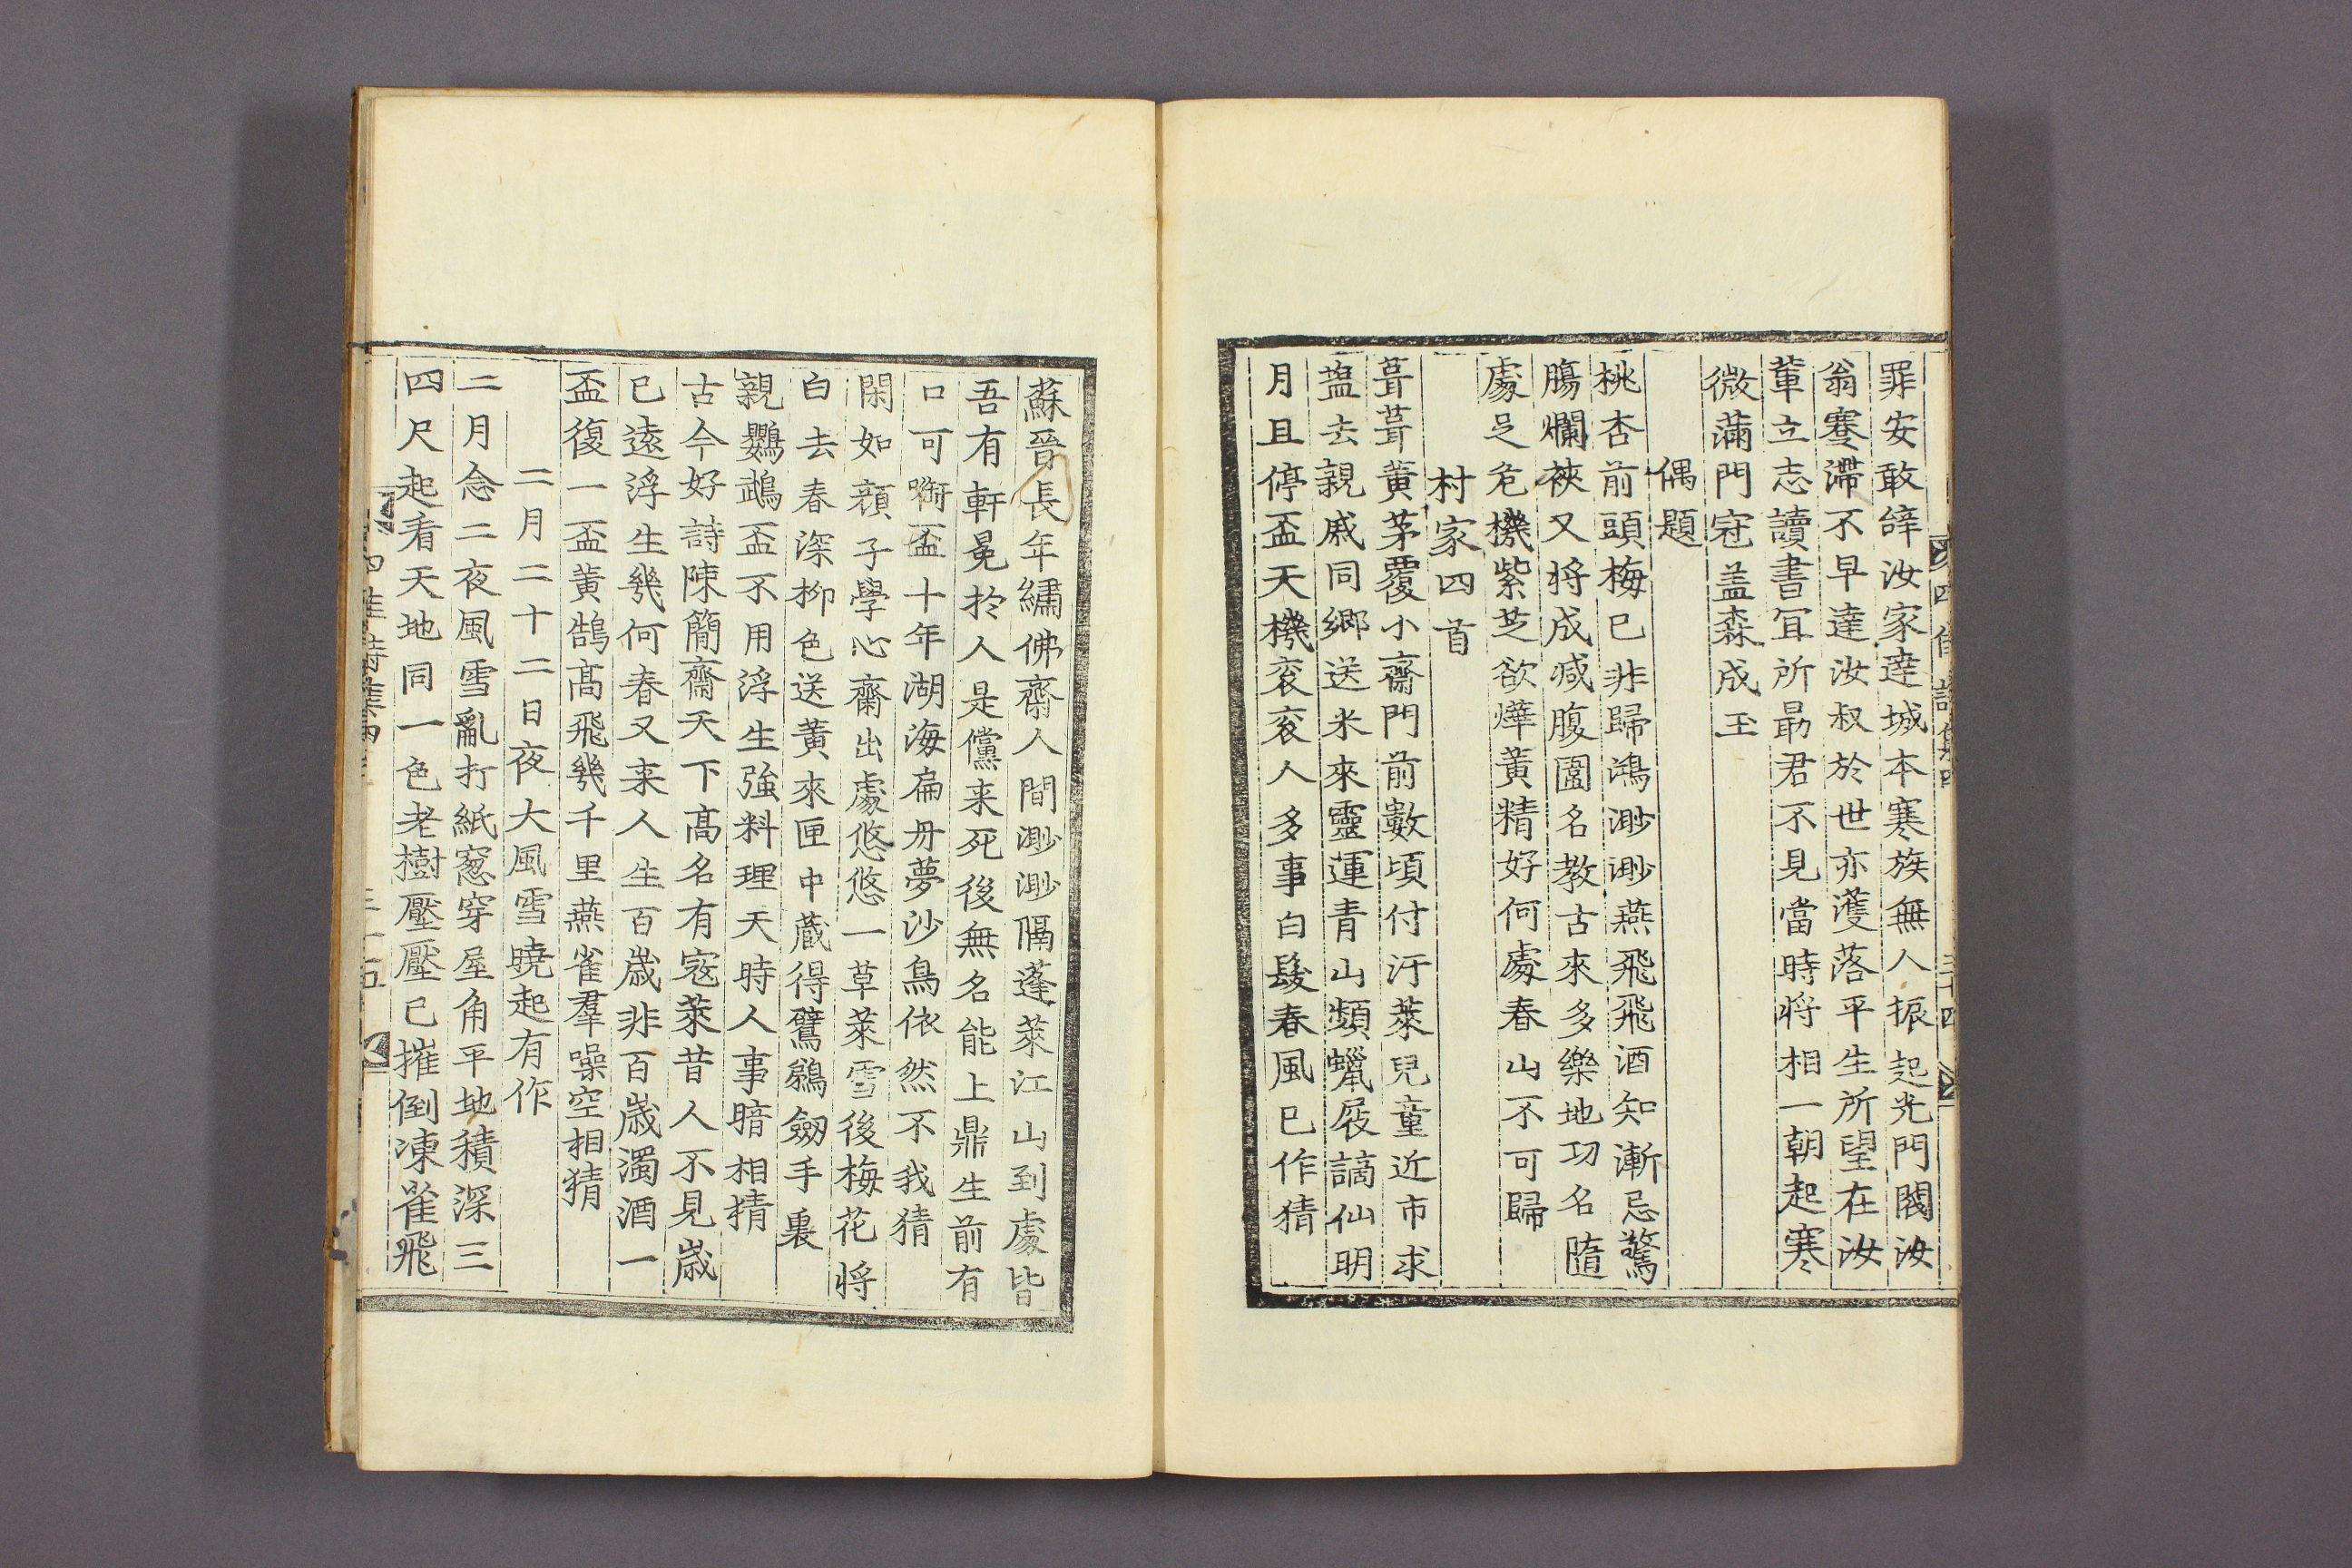 罪安敢辝汝家達城本寒族無人振起光門閥汝
翁蹇滯不早達汝叔於世亦濩落平生所望在汝
輩立志讀書冝所勗君不見當時将相一朝起寒
微滿門冠盖森成玉
偶題
桃杏前頭梅已非歸鴻渺渺燕飛飛酒知漸忌驚
膓爛袂又将成减腹圍名教古來多樂地功名随
處足危機紫芝欲燁黄精好何處春山不可歸
村家四首
葺葺黄茅覆小齋門前數頃付汙萊兒童近市求
塩去親戚同鄉送米來靈運青山頻蠟屐謫仙明
月且停盃天機衮衮人多事白髮春風已作猜
蘇晉長年繡佛齋人間渺渺隔蓬萊江山到處皆
吾有軒冕於人是儻来死後無名能上鼎生前有
口可㗸盃十年湖海扁舟夢沙鳥依然不我猜
閑如顔子學心齋出處悠悠一草萊雪後梅花将
白去春深柳色送黄來匣中藏得鸊鵜劔手裏
親鸚鵡盃不用浮生強料理天時人事暗相猜
古今好詩陳簡齋天下高名有寇萊昔人不見歲
已遠浮生幾何春又来人生百歲非百歲濁酒一
盃復一盃黄鵠高飛幾千里燕雀羣噪空相猜
二月二十二日夜大風雪曉起有作
二月念二夜風雪亂打紙窓穿屋角平地積深三
四尺起看天地同一色老樹壓壓已摧倒凍雀飛